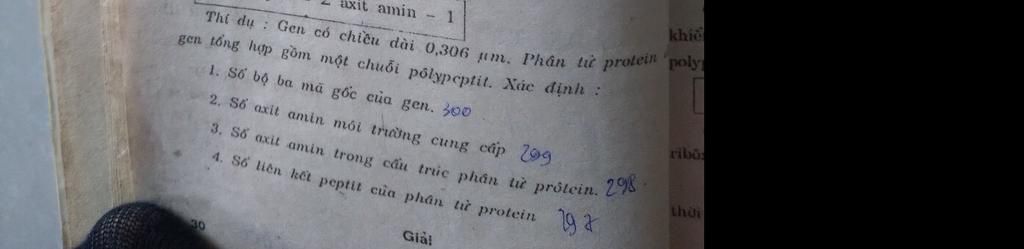 2 axit amin - 1
Thí dụ : Gen có chiều dài 0,306 µm. Phân tử protein
gen tổng hợp gồm một chuỗi pôlypeptit. Xác định :
1. Số bộ ba mã gốc của gen. 300
2. Số axit amin môi trường cung cấp 299
3. Số axit amin trong cấu trúc phân tử prôtein. 298.
4. Số liên kết peptit của phân tử protein 297
30
Giải
khiế
polyp
ribôx
thời